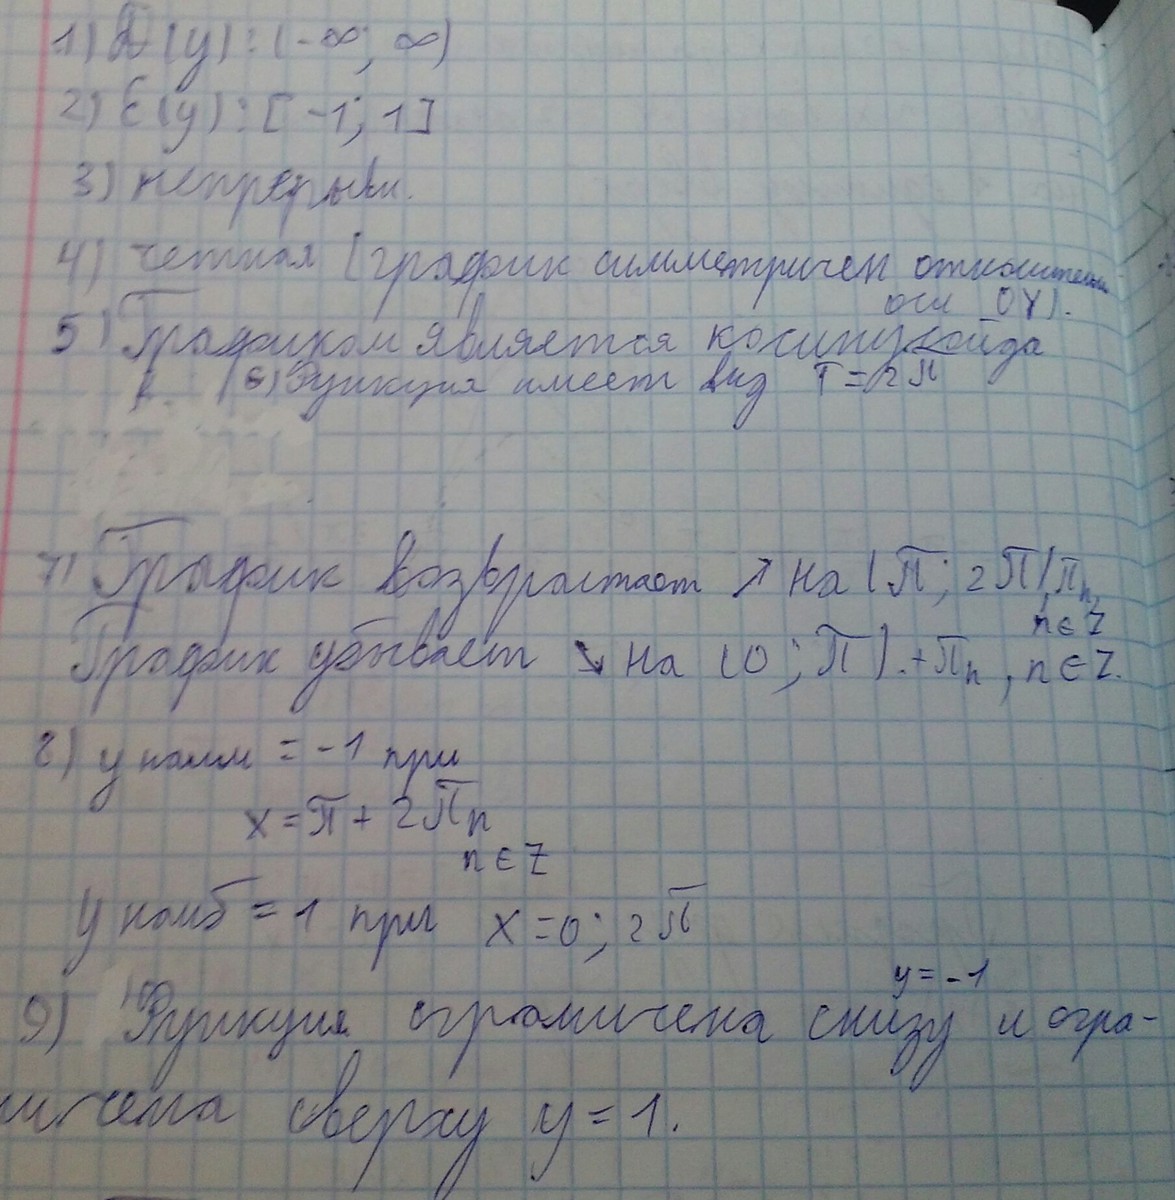 1) D(y): (-∞; ∞)
2) E(y): [-1; 1]
3) непрерывн.
4) четная (график симметричен относительн
оси OY).
5) Графиком является косинусойда
6) Функция имеет вид T = 2π
7) График возврастает ↗ на (π; 2π) πn,
n ∈ Z
График убывает ↘ на (0; π). + πn, n ∈ Z.
8) y наим = -1 при
x = π + 2πn
n ∈ Z
y наиб = 1 при x = 0; 2π
y = -1
9) Функция ограничена снизу и огра-
ничена сверху y = 1.